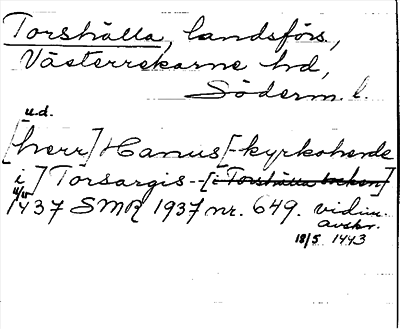 Torshälla, landsförs.,
Västerrekarne hd,
Söderm. l.
u.d.
[herr] Hanus [- kyrkoherde
i] Torsargis -- [i Torshälla socken]
1437 SMR 1937 nr. 649. vidim.
avskr.
18/5 1443